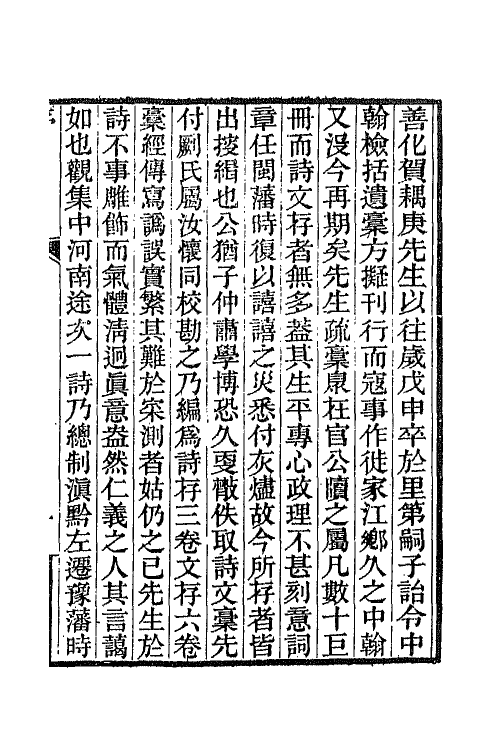 善化賀耦庚先生以往歲戊申卒於里第嗣子詒令中
翰檢括遺稾方擬刊行而寇事作徙家江鄉久之中翰
又沒今再期矣先生疏稾㒸在官公牘之屬凡數十巨
冊而詩文存者無多葢其生平專心政理不甚刻意詞
章任閩藩時復以譆譆之災悉付灰燼故今所存者皆
出掇緝也公猶子仲肅學博恐久更散佚取詩文稾先
付劂氏屬汝懷同校勘之乃編爲詩存三卷文存六卷
稾經傳寫譌誤實繁其難於𥥍測者姑仍之已先生於
詩不事雕飾而氣體淸迥眞意盎然仁義之人其言藹
如也觀集中河南途次一詩乃總制滇黔左遷豫藩時
序
一